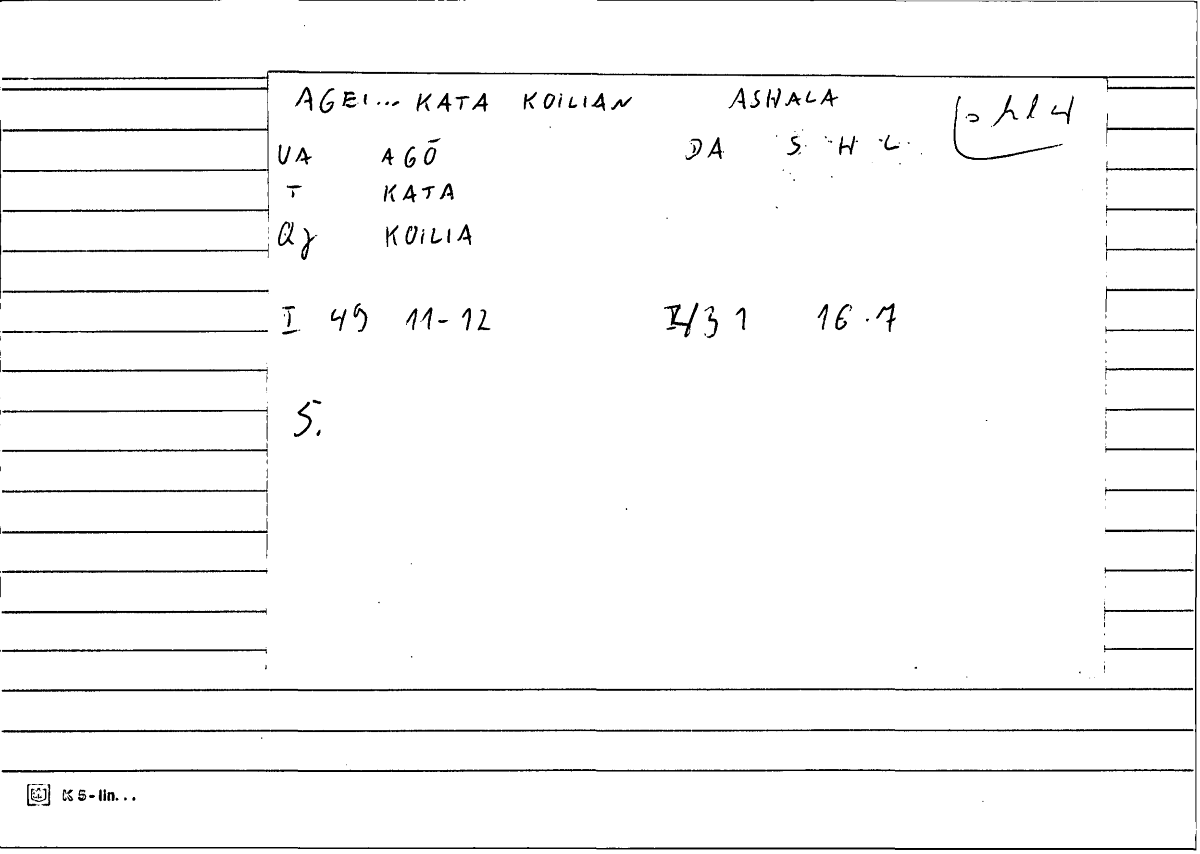 AGEI... KATA KOILIAN ASHALA
VA AGŌ DA S H L
T KATA
Qy KOILIA
I 49 11-12 31 16.7
5.
K 5-lin...